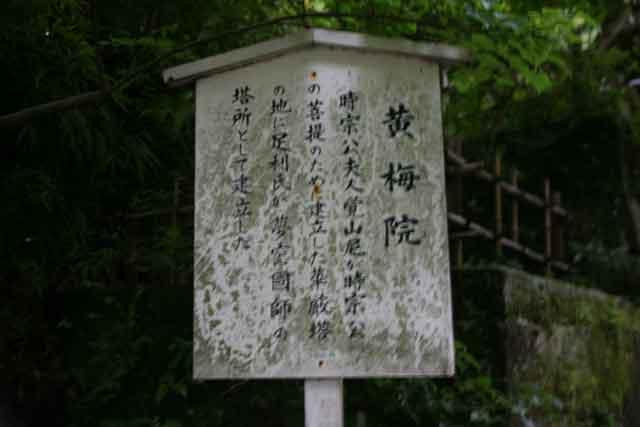 黄梅院
時宗公夫人覚山尼が時宗公
の菩提のため建立した華厳塔
の地に足利氏が夢窓國師の
塔所として建立した